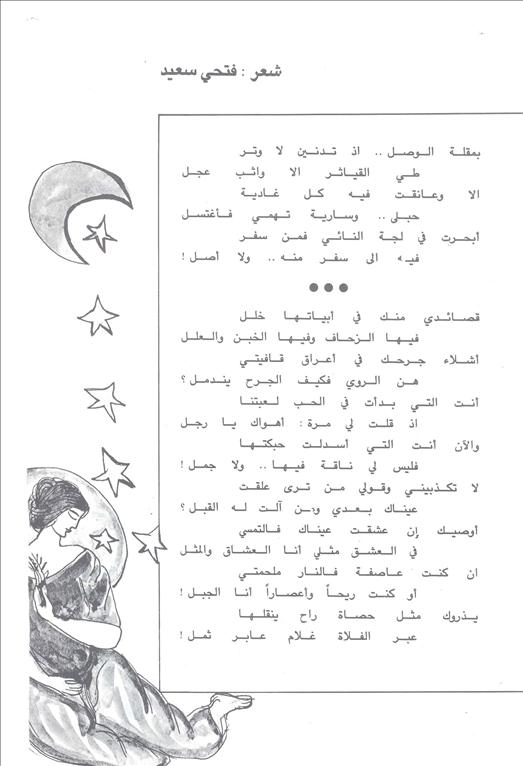 شعر : فتحي سعيد
بمقلة الوصل .. اذ تدنين لا وتر
طي القياثر الا واثب عجل
الا وعانقت فيه كل غادية
حبلى .. وسارية تهمي فأغتسل
أبحرت في لجة النائي فمن سفر
فيه الى سفر منه .. ولا أصل !
●●●
قصائدي منك في أبياتها خلل
فيها الزحاف وفيها الخبن والعلل
أشلاء جرحك في أعراق قافيتي
هن الروي فكيف الجرح يندمل ؟
أنت التي بدأت في الحب لعبتنا
اذ قلت لي مرة : أهواك يا رجل
والآن أنت التي أسدلت حبكتها
فليس لي ناقة فيها .. ولا جمل !
لا تكذبيني وقولي من ترى علقت
عيناك بعدي ومن آلت له القبل ؟
أوصيك إن عشقت عيناك فالتمسي
في العشق مثلي انا العشاق والمثل
ان كنت عاصفة فالنار ملحمتي
أو كنت ريحاً وأعصاراً انا الجبل !
يذروك مثل حصاة راح ينقلها
عبر الفلاة غلام عابر ثمل !